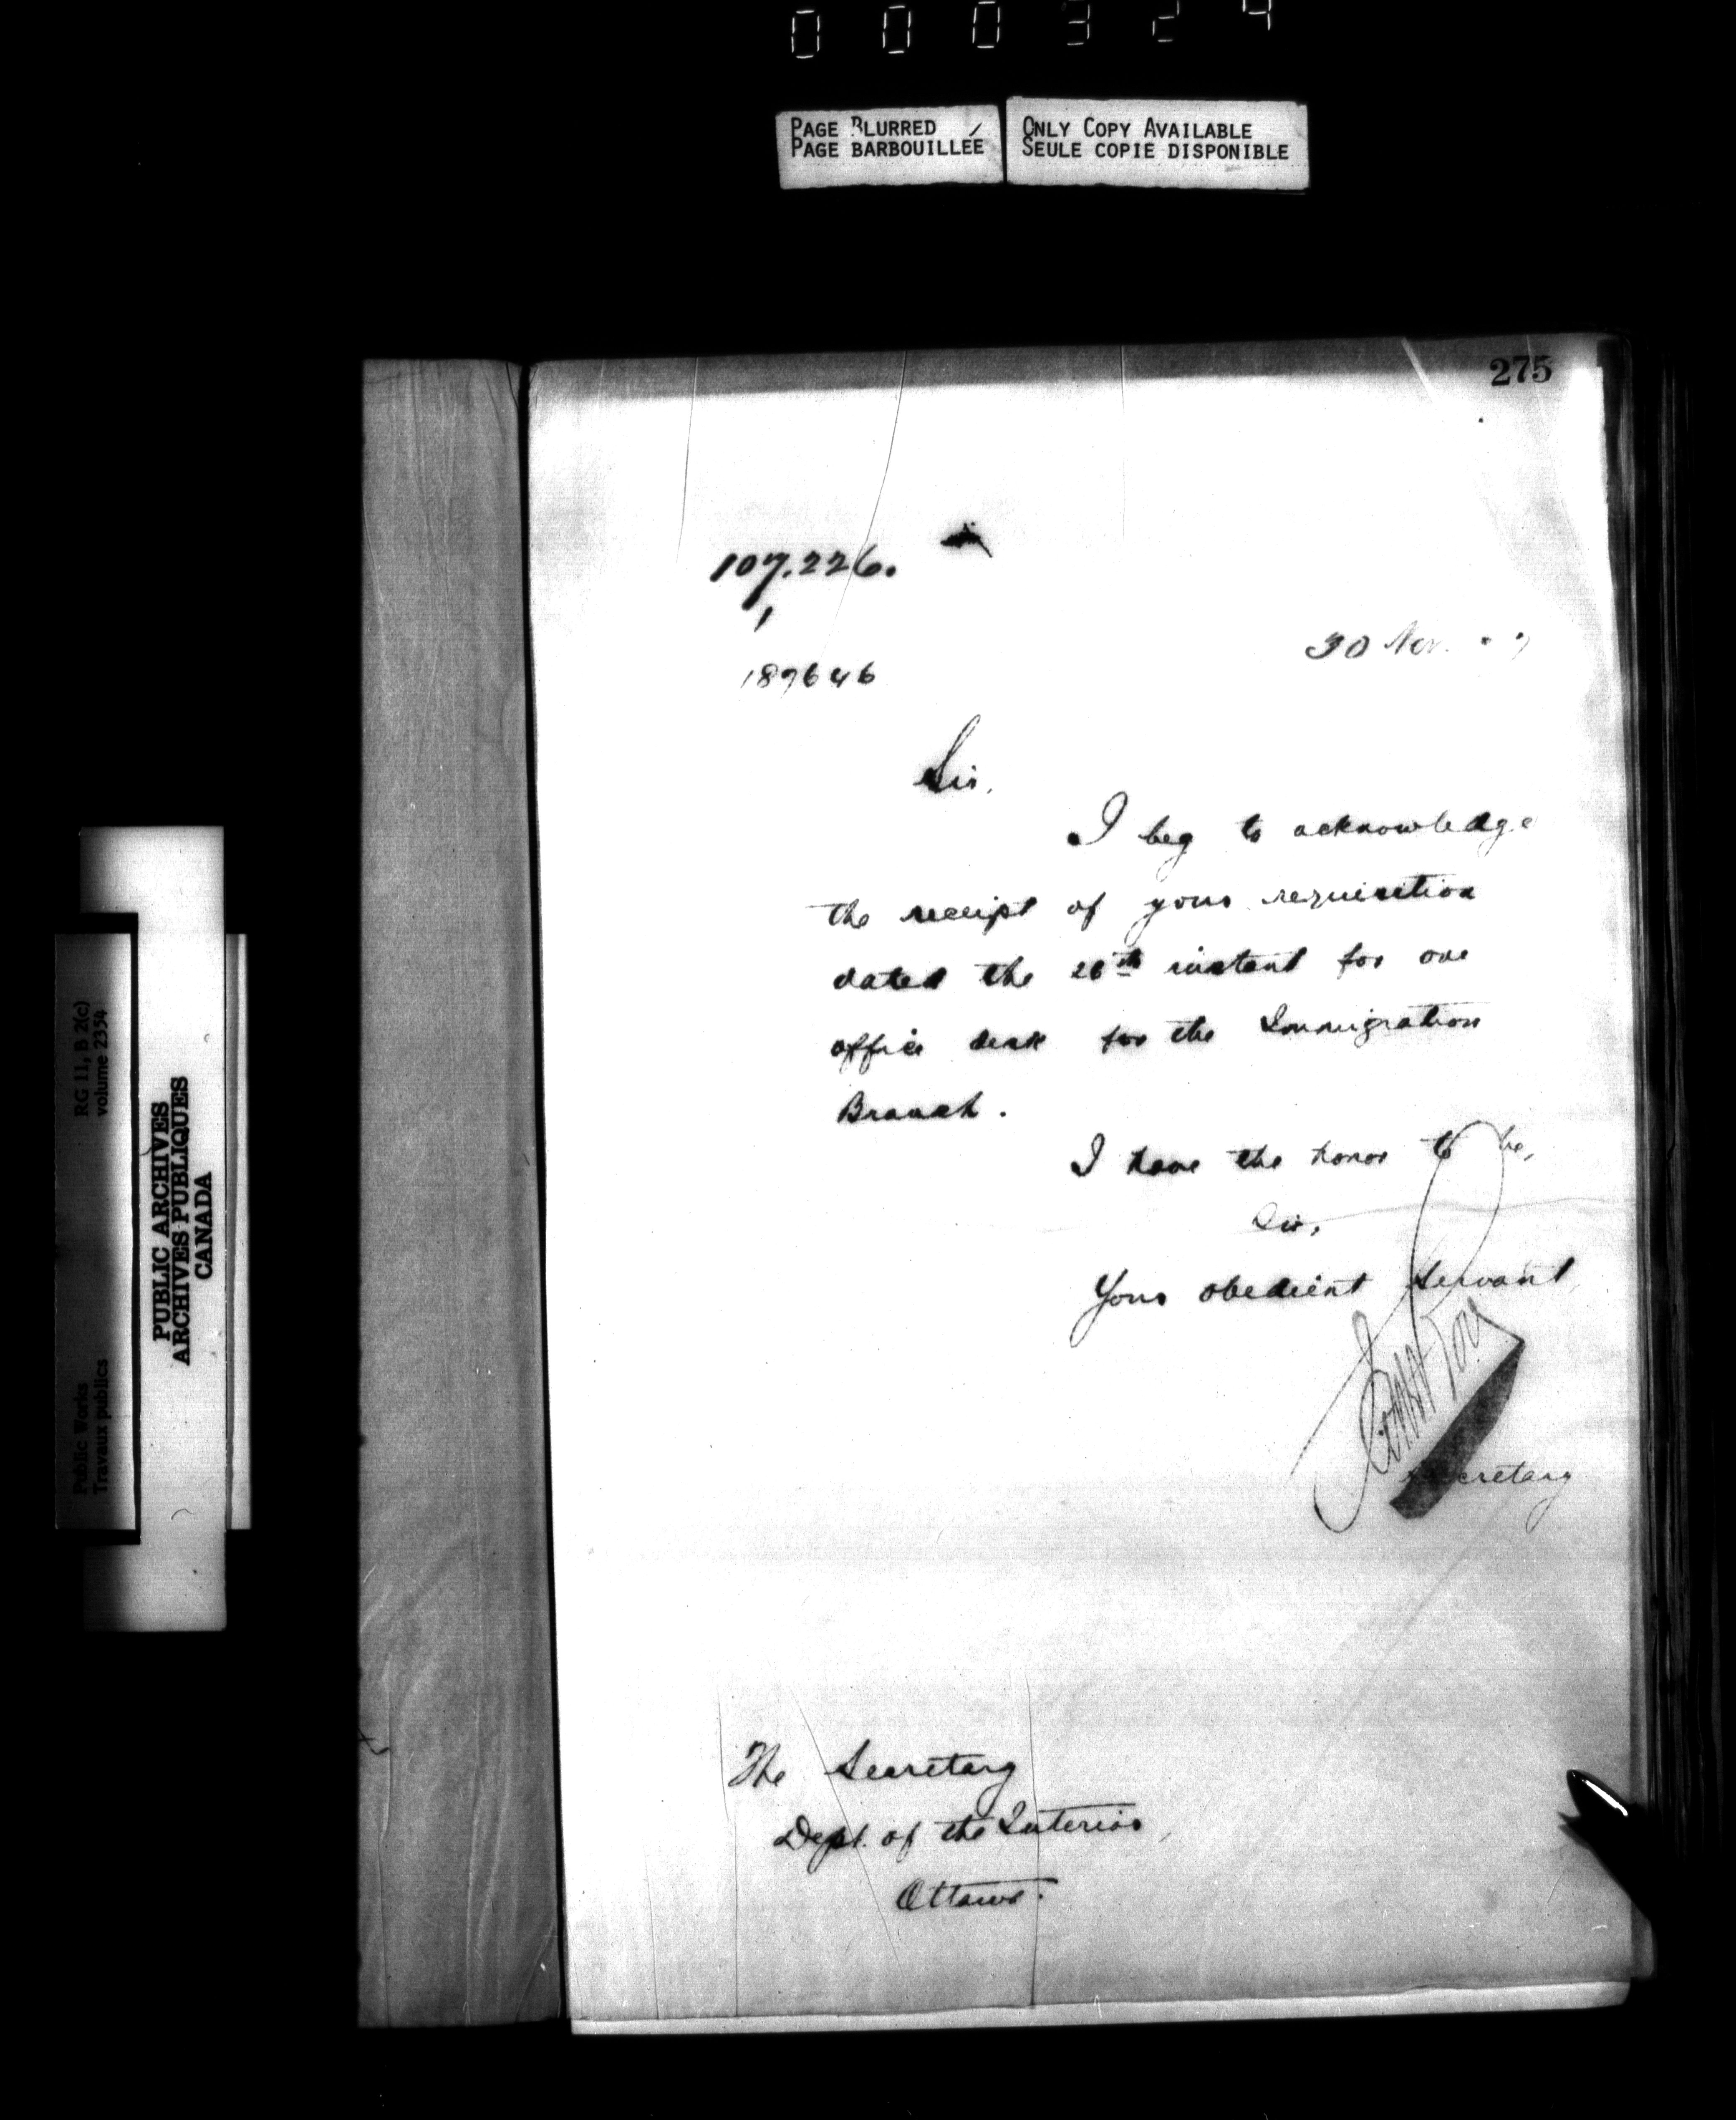 000324
PAGE BLURRED
PAGE BARBOUILLÉE
ONLY COPY AVAILABLE
SEULE COPIE DISPONIBLE
275
107.226.
1
189646
30 Nov.
Sir,
I beg to acknowledge
the receipt of your requisition
dated the 26th instant for one
office desk for the Immigration
Branch.
I have the honor to be,
Sir,
Your obedient servant,
Secretary
The Secretary
Dept. of the Interior,
Ottawa.
RG 11, B 2(c)
volume 2354
Public Works
Travaux publics
PUBLIC ARCHIVES
ARCHIVES PUBLIQUES
CANADA